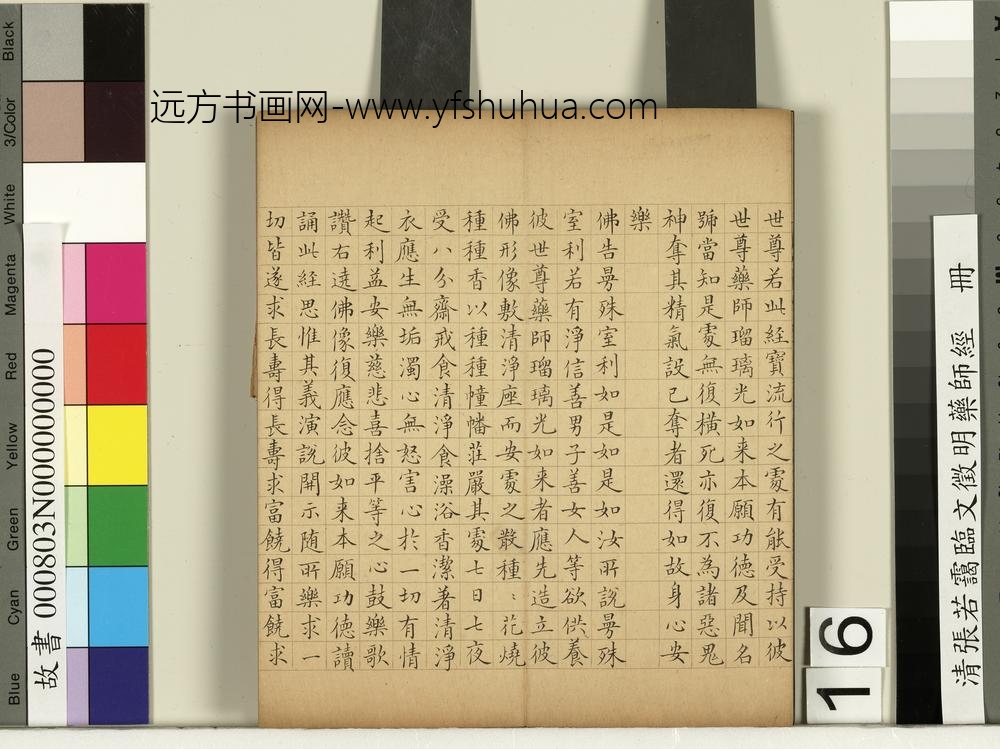 远方书画网-www.yfshuhua.com
世尊若此經寶流行之處有能受持以彼
世尊藥師瑠璃光如来本願功德及聞名
號當知是處無復橫死亦復不為諸惡鬼
神奪其精氣設已奪者還得如故身心安
樂
佛告曼殊室利如是如是如汝所說曼殊
室利若有淨信善男子善女人等欲供養
彼世尊藥師瑠璃光如来者應先造立彼
佛形像敷清淨座而安處之散種〻花燒
種種香以種種幢幡莊嚴其處七日七夜
受八分齋戒食清淨食澡浴香潔著清淨
衣應生無垢濁心無怒害心於一切有情
起利益安樂慈悲喜捨平等之心鼓樂歌
讚右遶佛像復應念彼如来本願功德讀
誦此經思惟其義演說開示随所樂求一
切皆遂求長壽得長壽求富饒得富饒求
清張若靄臨文徵明藥師經 冊
16
故書 000803N000000000
Black
3/Color
White
Magenta
Red
Yellow
Green
Cyan
Blue